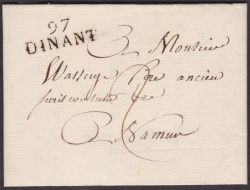 97
DINANT
A Monsieur
Wasseige Pere ancien
A Namur